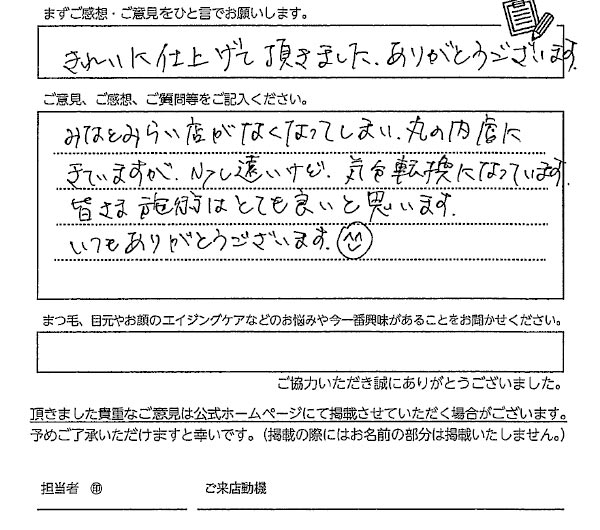 まずご感想・ご意見をひと言でお願いします。
きれいに仕上げて頂きました。ありがとうございます。
ご意見、ご感想、ご質問等をご記入ください。
みなとみらい店がなくなってしまい、丸の内店に
きていますが、少し遠いけど、気分転換になっています。
皆さま施術はとても良いと思います。
いつもありがとうございます。
まつ毛、目元やお顔のエイジングケアなどのお悩みや今一番興味があることをお聞かせください。
ご協力いただき誠にありがとうございました。
頂きました貴重なご意見は公式ホームページにて掲載させていただく場合がございます。
予めご了承いただけますと幸いです。（掲載の際にはお名前の部分は掲載いたしません。）
担当者 ㊞ ご来店動機